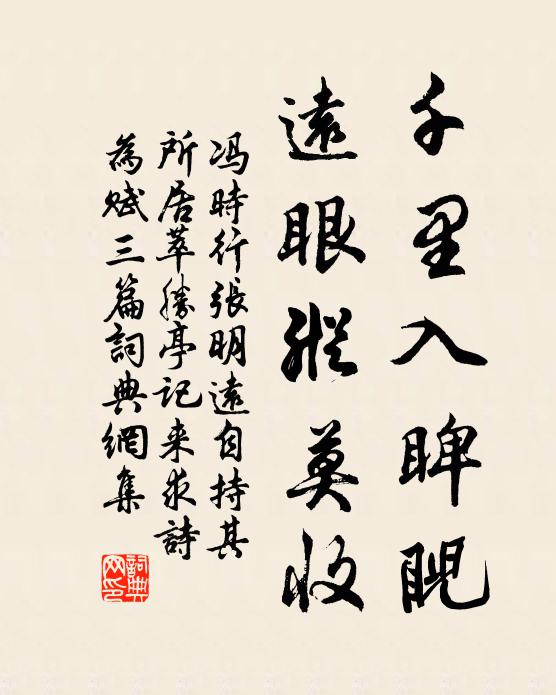 千里入睥睨
遠眼縱莫收
冯時行張明遠自持其
所居萃勝亭記来求詩
為賦三篇詞典網集
詞典网印